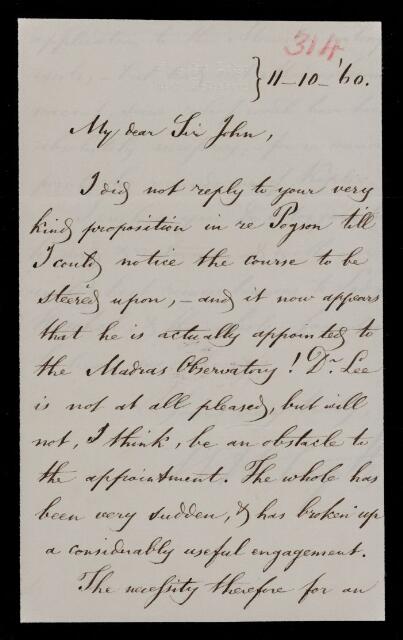 314
} 11-10-'60.
My dear Sir John,
I did not reply to your very
kind proposition in re Pogson till
I could notice the course to be
steered upon, – and it now appears
that he is actually appointed to
the Madras Observatory! Dr. Lee
is not at all pleased, but will
not, I think, be an obstacle to
the appointment. The whole has
been very sudden, & has broken up
a considerably useful engagement.
The necessity therefore for an